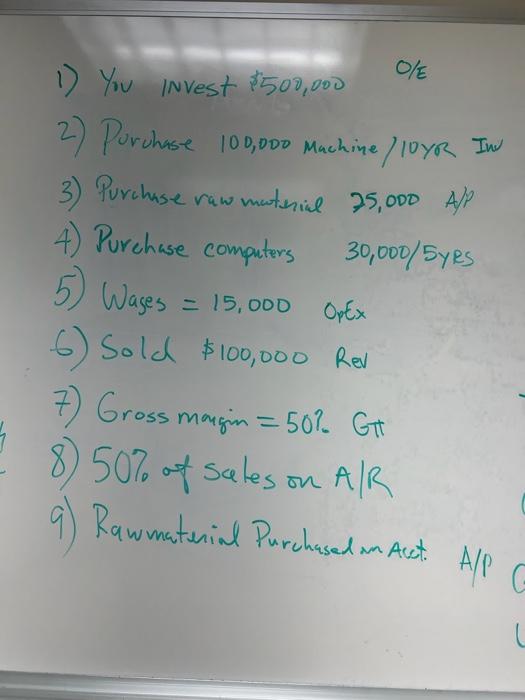 1) You invest $500,000 O/E
2) Purchase 100,000 Machine/10yr Inv
3) Purchase raw material 25,000 A/P
4) Purchase computers 30,000/5yrs
5) Wages = 15,000 OpEx
6) Sold $100,000 Rev
7) Gross margin = 50% Gπ
8) 50% of sales on A/R
9) Raw material Purchased on Acct. A/P